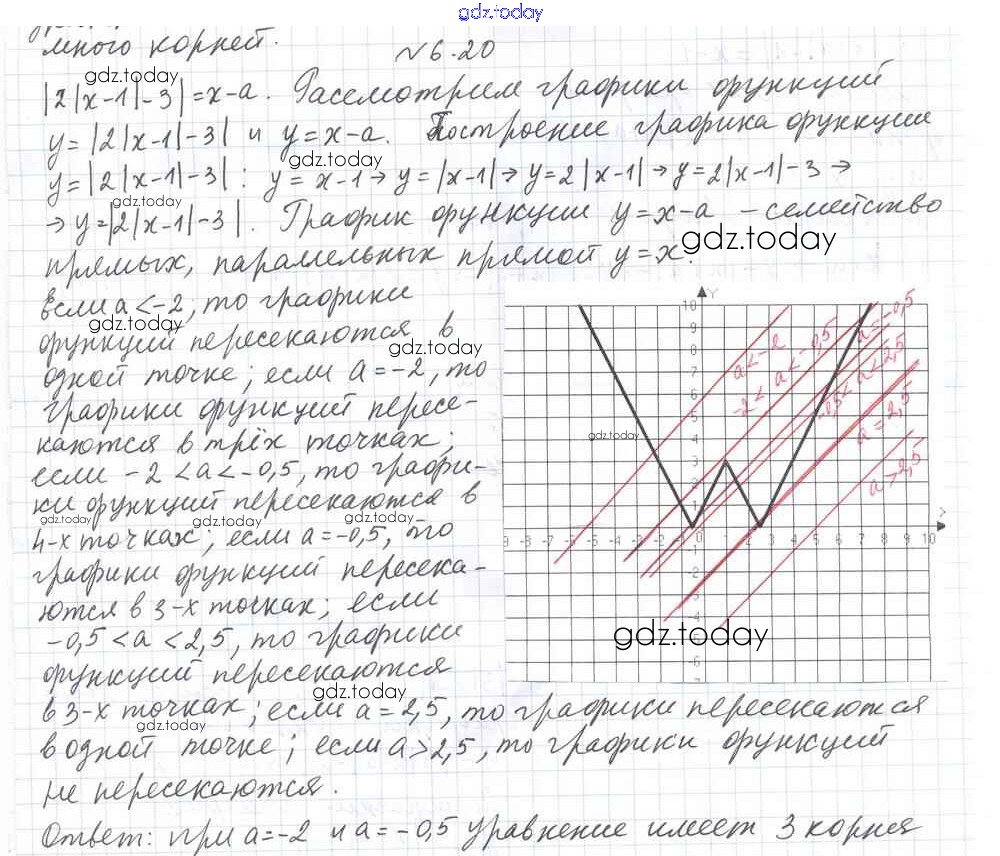 gdz.today
много корней.
№ 6.20
gdz.today
|2|x-1|-3|=x-a. Рассмотрим графики функций
y=|2|x-1|-3| и y=x-a. Построение графика функции
gdz.today
y=|2|x-1|-3|: y=x-1→y=|x-1|→y=2|x-1|→y=2|x-1|-3→
gdz.today
→y=|2|x-1|-3|. График функции y=x-a – семейство
gdz.today
прямых, параллельных прямой y=x.
если a<-2, то графики
gdz.today
функций пересекаются в
gdz.today
одной точке; если a=-2, то
графики функций пересе-
каются в трёх точках;
если -2<a<-0,5, то графи-
ки функций пересекаются в
gdz.today gdz.today gdz.today
4-х точках; если a=-0,5, то
графики функций пересека-
ются в 3-х точках; если
-0,5<a<2,5, то графики
функций пересекаются
gdz.today
в 3-х точках; если a=2,5, то графики пересекаются
в одной точке; если a>2,5, то графики функций
не пересекаются.
Ответ: при a=-2 и a=-0,5 уравнение имеет 3 корня
Y
10
9
8
7
6
5
4
3
a<-2
-2<a<-0,5
a=-0,5
-0,5<a<2,5
a=2,5
a>2,5
gdz.today
X
-9 -8 -7 -6 -5 -4 -3 -2 -1 0 1 2 3 4 5 6 7 8 9 10
gdz.today